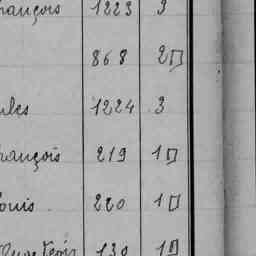 rançois 1223 3
868 2
ules 1224 3
rançois 219 1
ouis 220 1
130 19